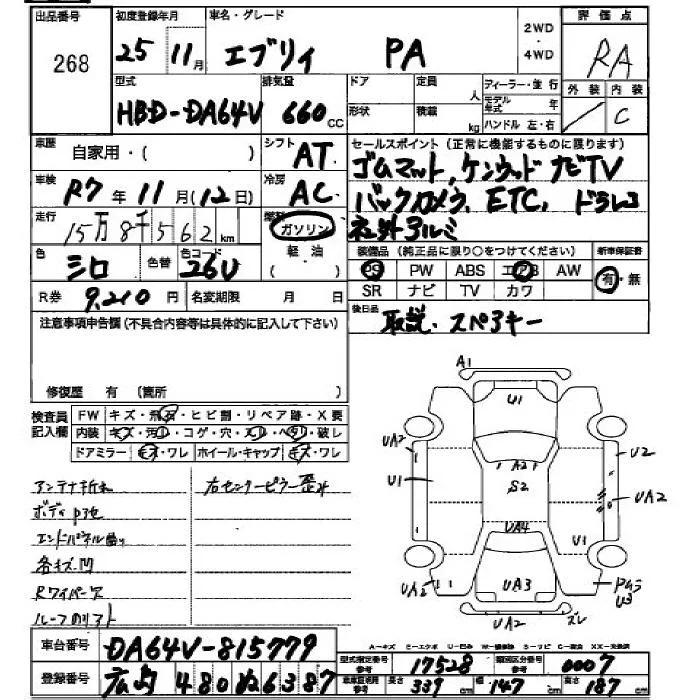 出品番号 初度登録年月 車名・グレード 2WD ・ 4WD 評価点
268 25 11月 エブリイ PA RA
型式 排気量 ドア 定員 人 ディーラー・並行 外装 内装
HBD-DA64V 660cc 形状 積載 kg モデル年式 年 ハンドル 左・右 C
車歴 自家用・( ) シフト AT セールスポイント(正常に機能するものに限ります)
車検 R7年11月(12日) 冷房 AC ゴムマット,ケンウッドナビTV
走行 15万8千562km 燃料 ガソリン バックカメラ,ETC,ドラレコ
軽油 社外アルミ
色 シロ 色替 色コード 26U ( ) 装備品(純正品に限り○をつけてください) 新車保証書
PS PW ABS エアB AW 有・無
R券 9,210円 名変期限 月 日 SR ナビ TV カワ
注意事項申告欄(不具合内容等は具体的に記入して下さい) 後日品 取説・スペアキー
修復歴 有 (箇所 )
検査員記入欄 FW キズ・飛石・ヒビ割・リペア跡・X要
内装 キズ・汚れ・コゲ・穴・スレ・ヘタリ・破レ
ドアミラー キズ・ワレ ホイール・キャップ キズ・ワレ
アンテナ折れ 右センターピラー歪み
ボディ
エンドパネル曲り
各キズ凹
Rワイパー欠
A1
U1
UA2 U2
U1 A2 S2 UA2
UA4 U1
UA2 UA3 U3
UA2 ズレ
A-キズ E-エクボ U-凹み W-補修跡 S-サビ C-腐食 XX-交換済
車台番号 DA64V-815779 型式指定番号 参考 17528 類別区分番号 参考 0007
登録番号 480 6387 車車証明用 参考 長さ 339cm 幅 147cm 高さ 187cm